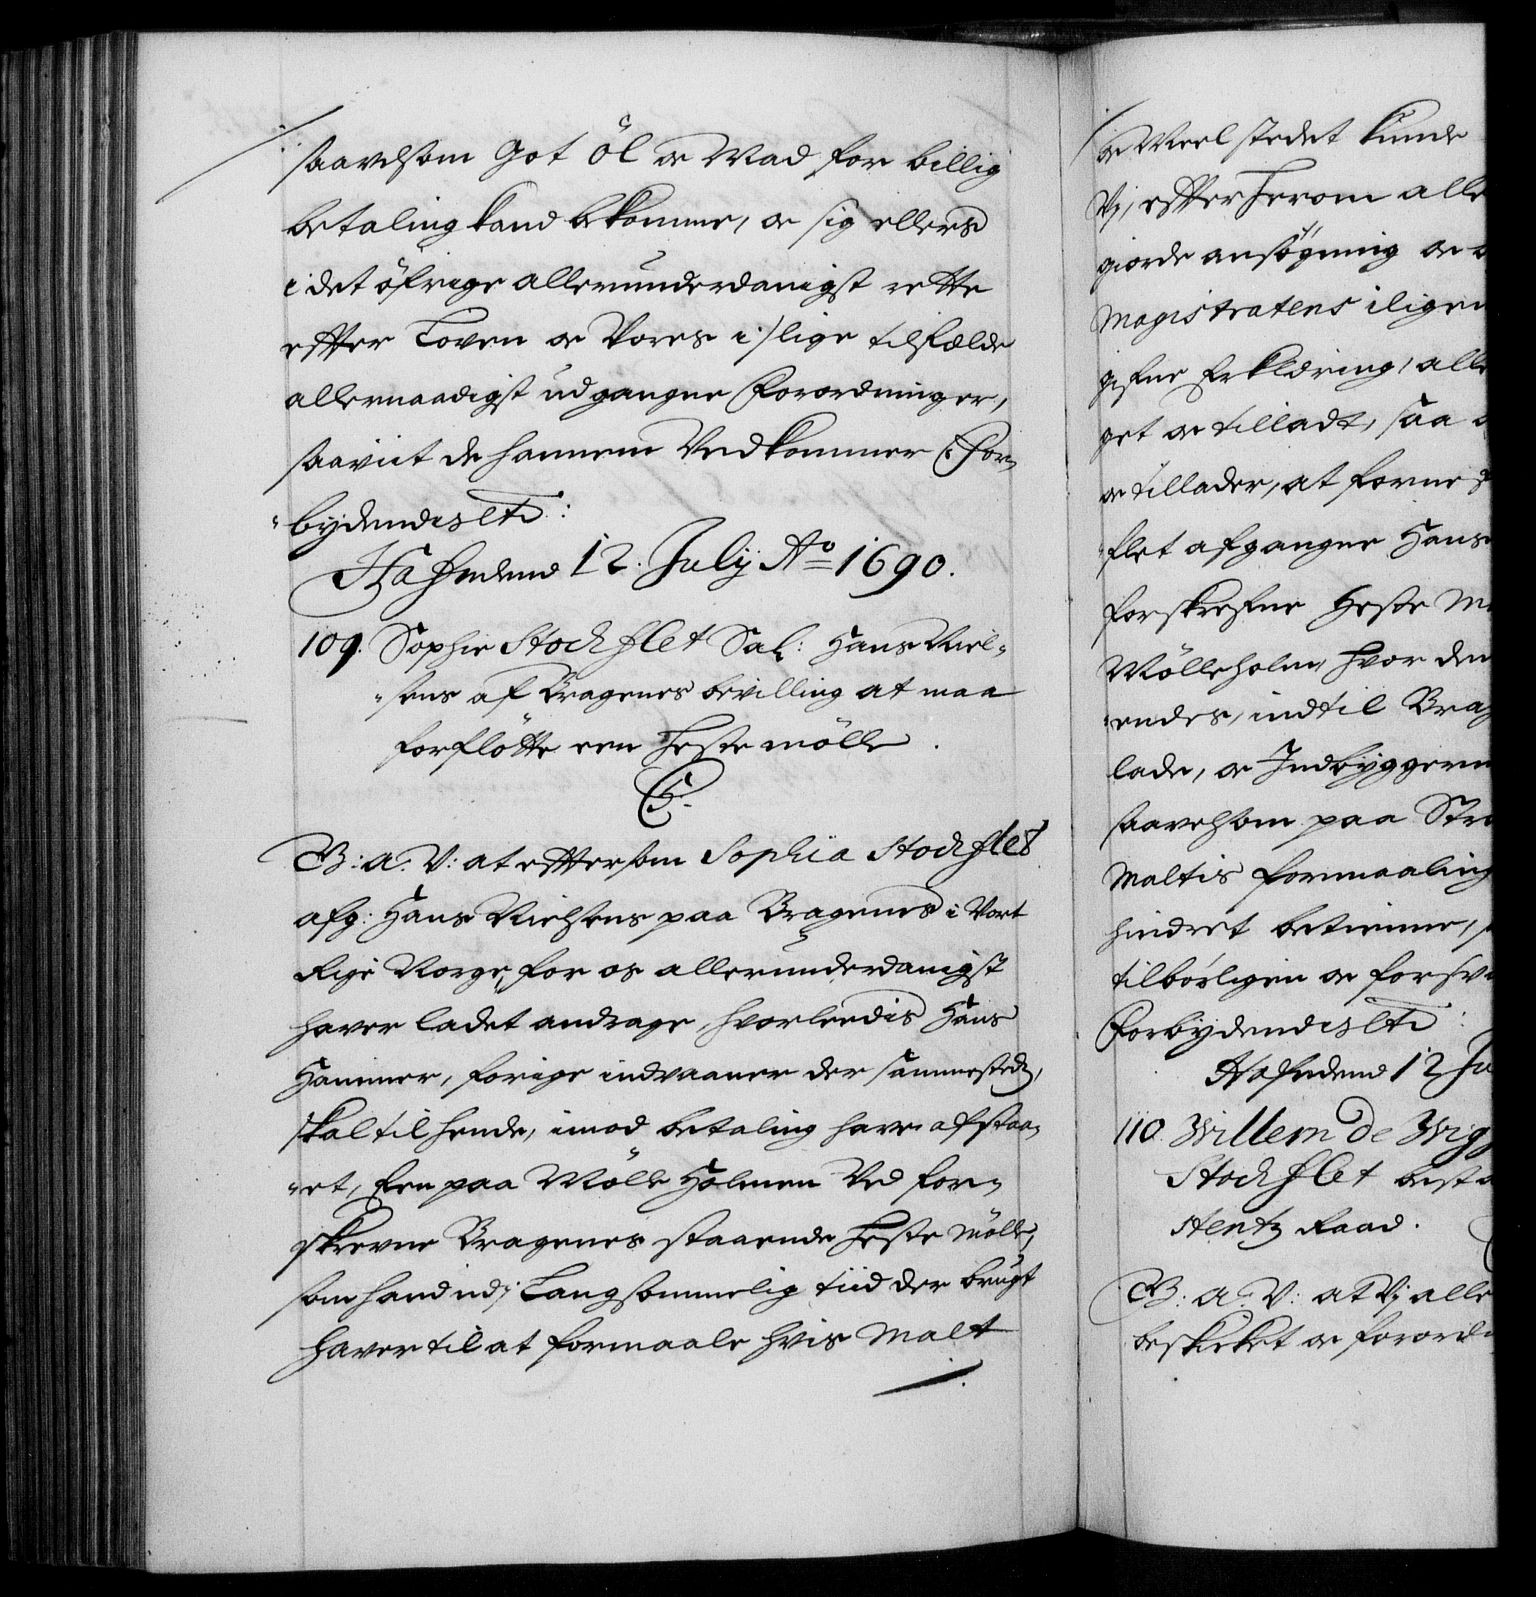 saavelsom Got öl oc Mad for billig
betaling kand bekomme, oc sig ellers
i det öfrige allerunderdanigst rette
effter Loven oc Vores i slige tilfælde
allernaadigst udgangne Forordninger,
saaviit de hannem Vedkommer /: For-
bydendis etc:
Hafniæ den 12. Julij Ao 1690.
109. Sophie Stockflet Sal: Hans Niel-
sens af Bragenes bevilling at maa
forflötte een Hestemölle.
C5.
G: a: V: at effttersom Sophia Stockflet
afg: Hans Nielsens paa Bragenes i Vort
Rige Norge, for os allerunderdanigst
haver ladet andrage, hvorledis Hans
Hammer, forige indvaaner der sammesteds,
skal til hende, imod betaling have afstaa-
et, Een paa Mölle Holmen Ved for-
skrevne Bragenes staaende Heste Mölle,
som hand udj Langsommelig tiid der brugt
haver til at formaale hvis Malt
oc Meel stedet kunde
Vj, effter herom alle
giorde ansögning oc
Magistratens
gifne Erklæring, alle
get oc tilladt, saa
oc tillader, at forne
flet afgangne Hans
forskrefne Heste
Mölleholm, hvor den
endes, indtil Brag
lade, oc Indbyggerne
saavelsom paa Strö
Maltis formaaling
hindret betienne,
tilbörligen oc forsv
Forbydendis etc:
Hafniæ den 12 Ju
110. Willem de Wigg
Stockflet
Raad.
G: a: V: at Vj alle
beskicket oc forord